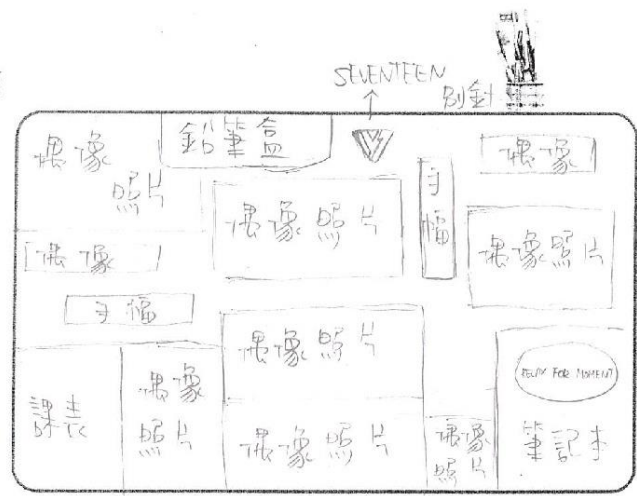 SEVENTEEN
別針
偶像
照片
鉛筆盒
手幅
偶像
偶像照片
偶像照片
偶像
手幅
課表
偶像
照片
偶像照片
偶像照片
偶像
照片
FOR MOMENT
筆記本